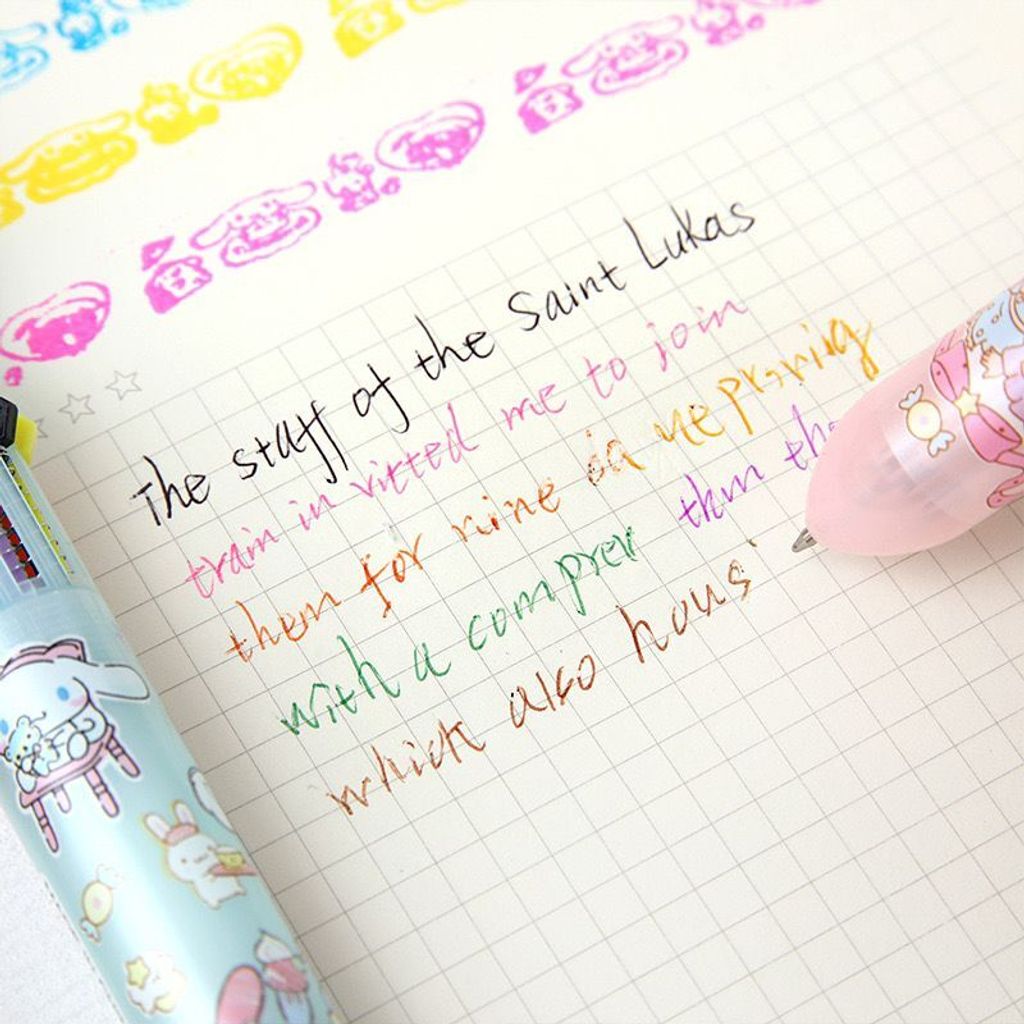 The staff of the Saint Lukas
train in vitted me to join
them for nine da ne priving
with a comprer thm the
which also hous